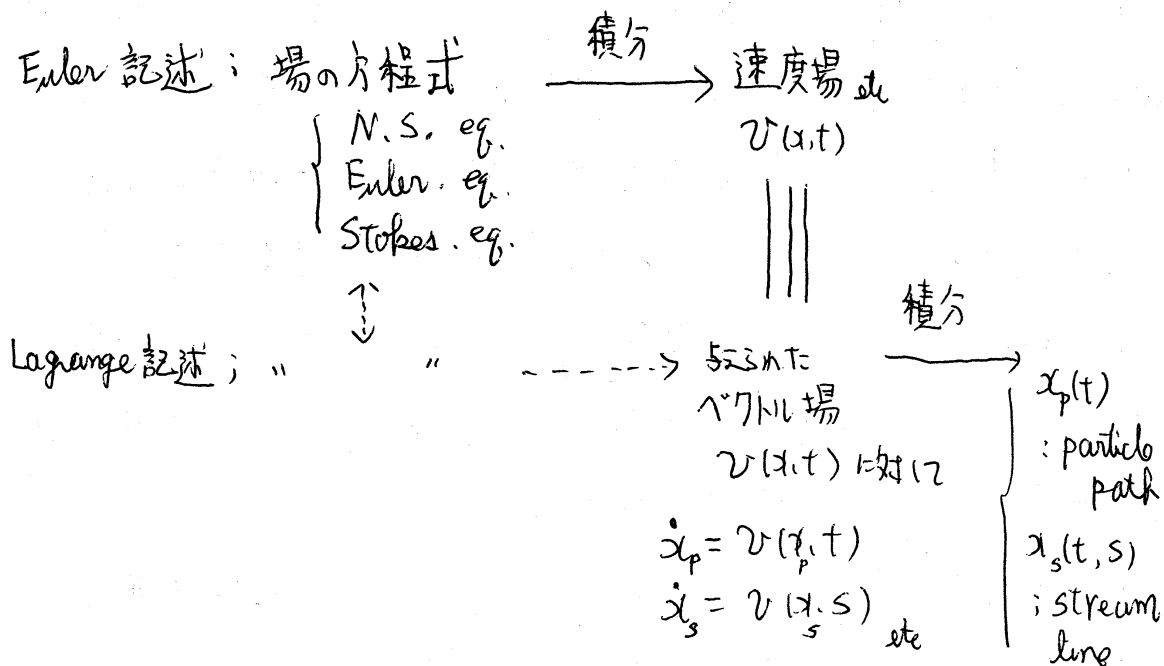 Euler 記述 ; 場の方程式 積分 速度場 etc
N.S. eq.
Euler. eq.
Stokes. eq.
v(x,t)
Lagrange 記述 ; 〃 〃 与えられた 積分
ベクトル場
v(x,t) に対して
ẋp = v(xp, t)
ẋs = v(xs, s) etc
xp(t)
: particle
path
xs(t, s)
; stream
line